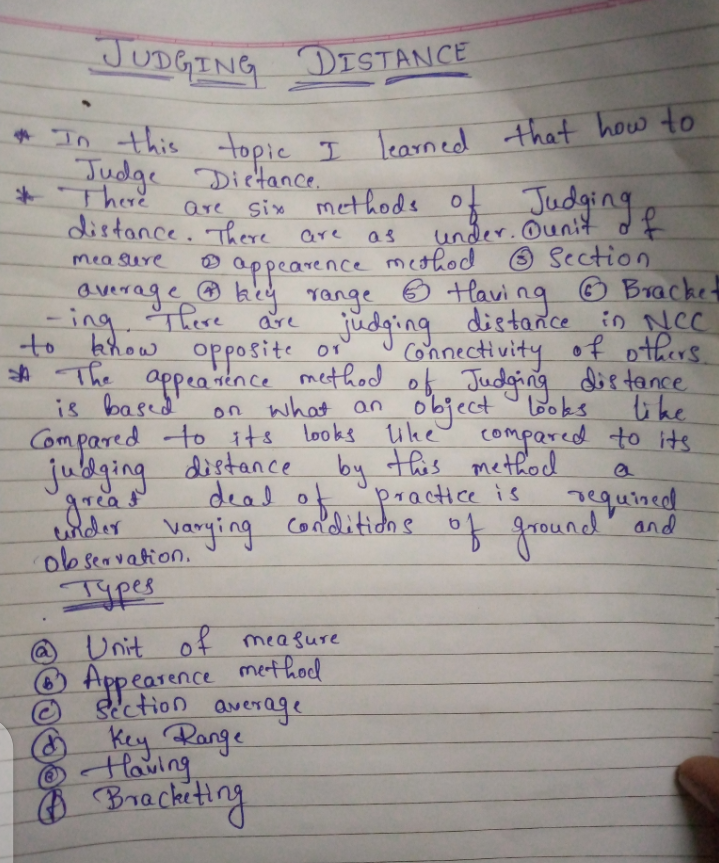 JUDGING DISTANCE
* In this topic I learned that how to
Judge Distance.
* There are six methods of Judging
distance. There are as under. ① unit of
measure ② appearence method ③ Section
average ④ key range ⑤ Having ⑥ Bracket
-ing. There are judging distance in NCC
to know opposite or connectivity of others.
* The appearence method of Judging distance
is based on what an object looks like
Compared to its looks like compared to its
judging distance by this method a
great deal of practice is required
under varying conditions of ground and
observation.
Types
ⓐ Unit of measure
ⓑ Appearence method
ⓒ Section average
ⓓ Key Range
ⓔ Having
ⓕ Bracketing